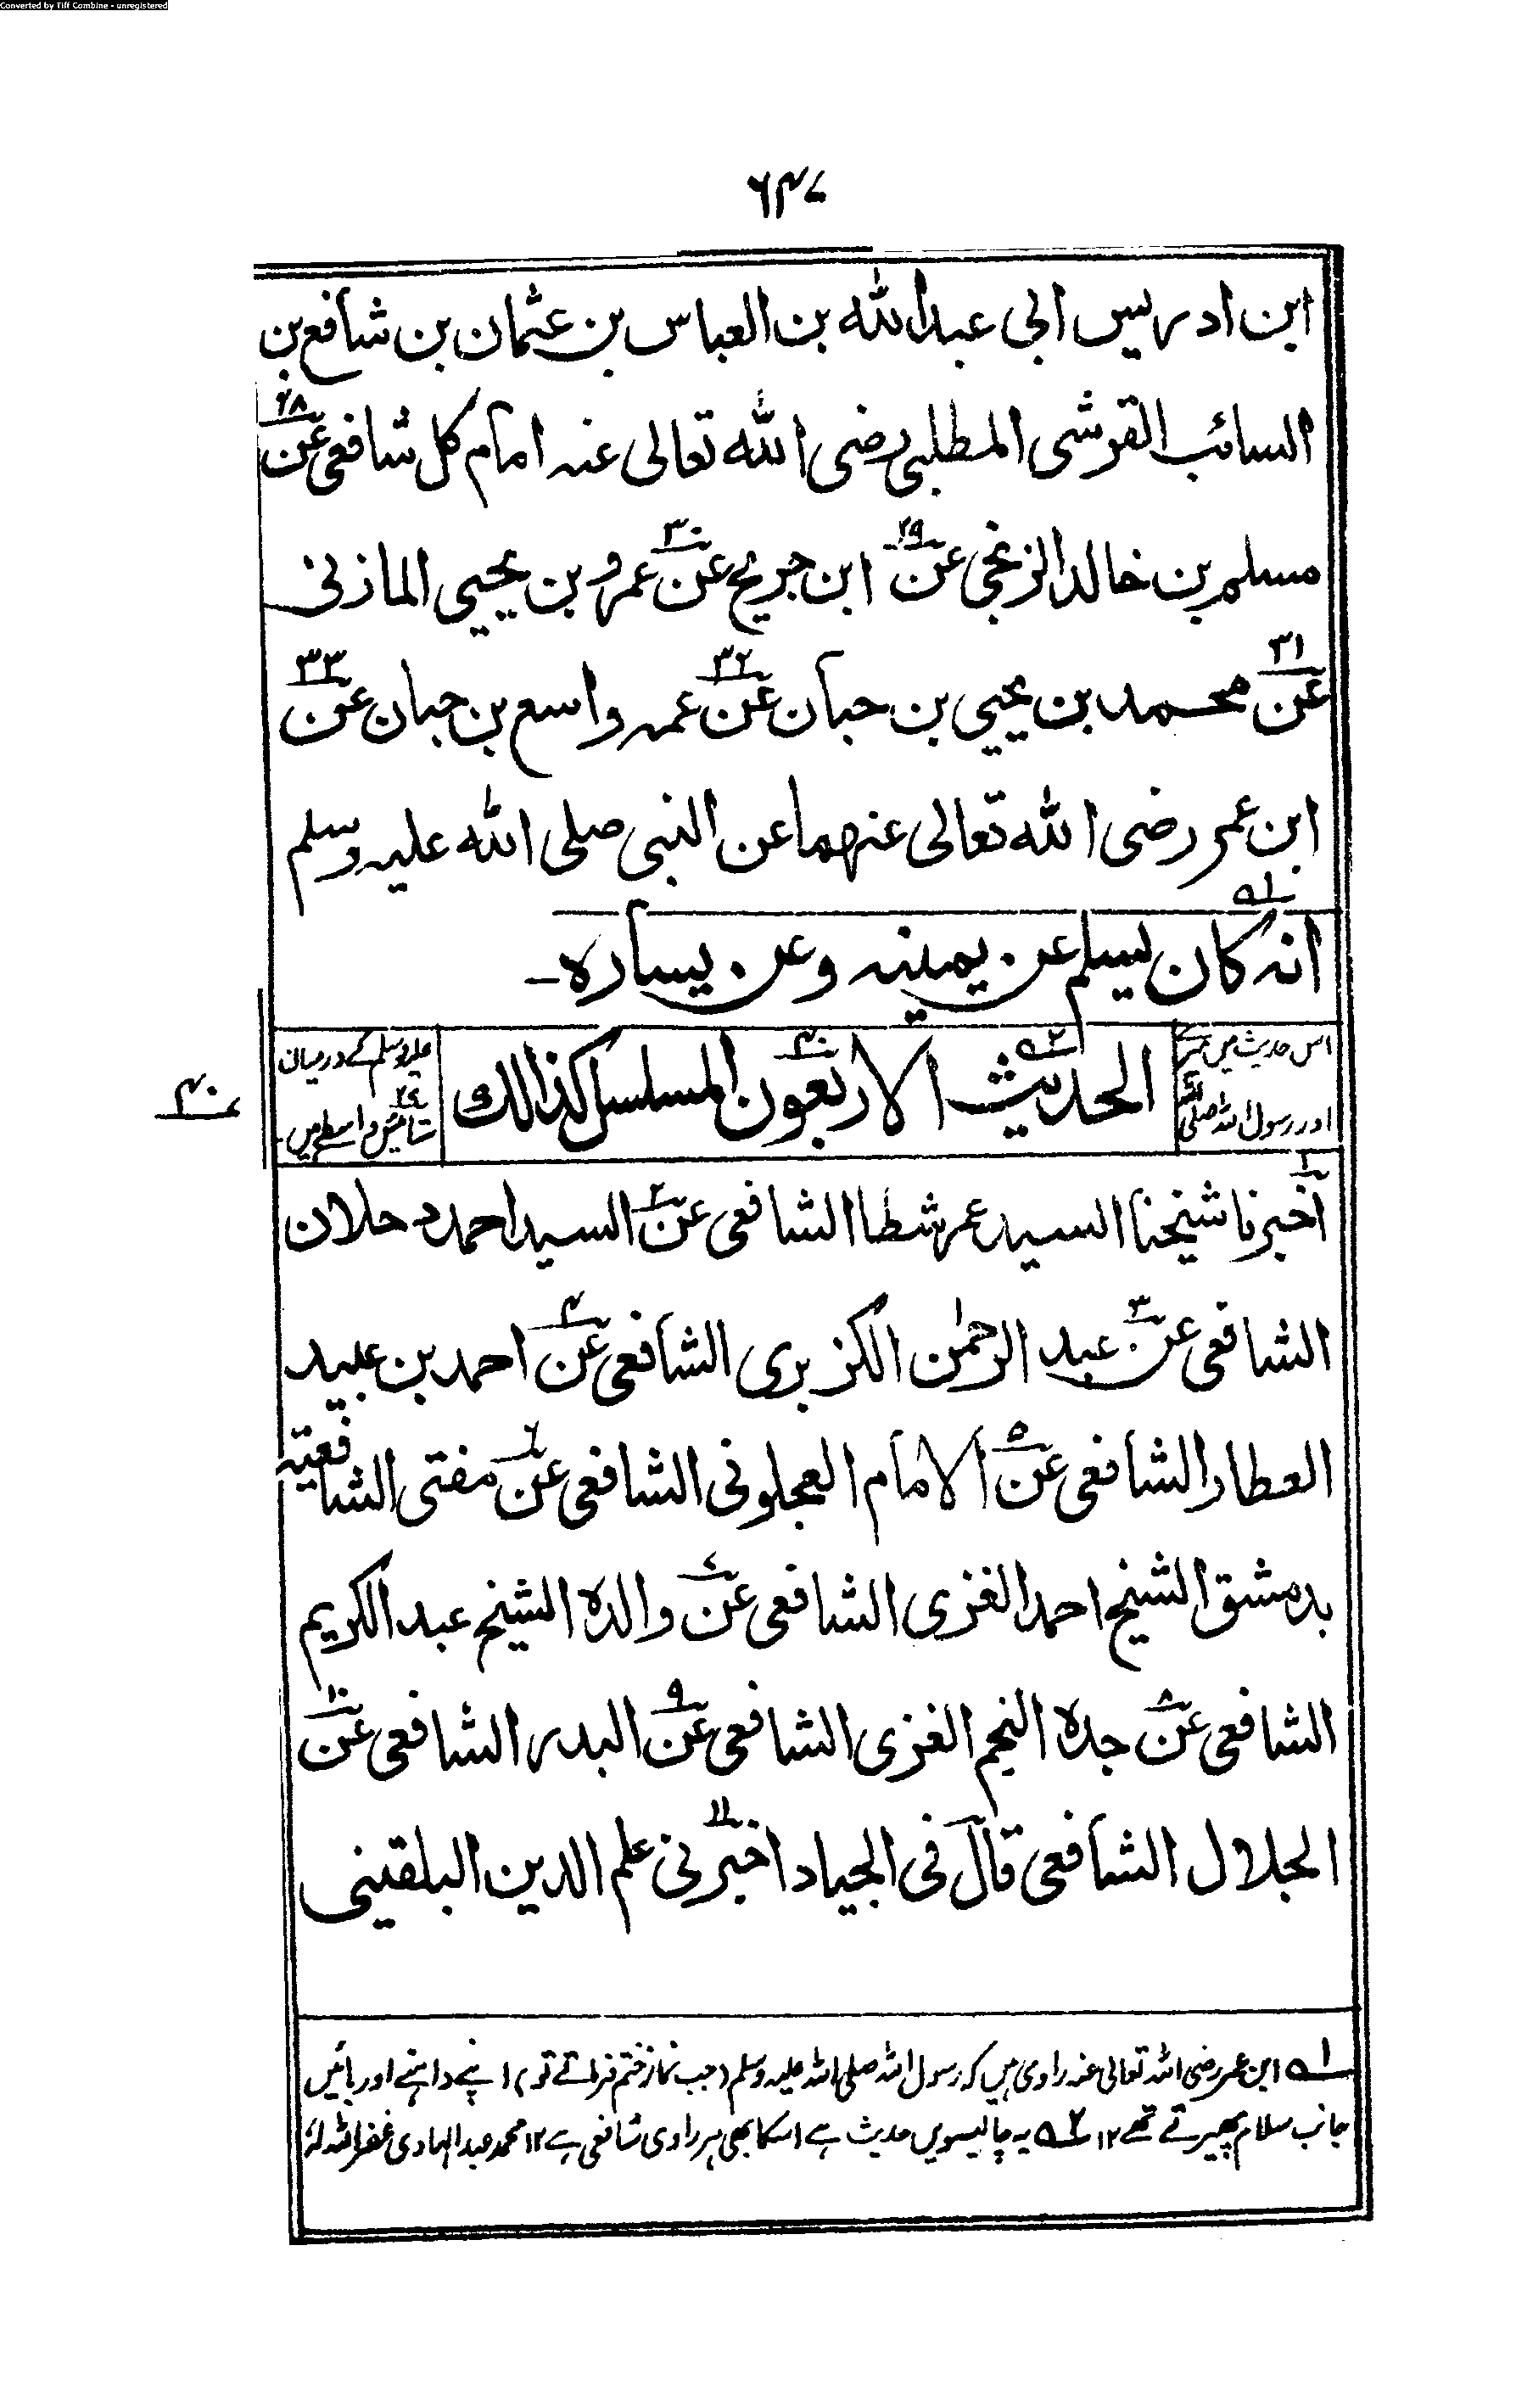 Converted by Tiff Combine - unregistered
۶۴۷
ابن ادریس ابی عبدالله بن العباس بن عثمان بن شافع بن
السائب القرشی المطلبی رضی الله تعالی عنه امام کل شافعی عن ۲۸
مسلم بن خالد الزنجی عن ۲۹ ابن جریج عن ۳۰ عمرو بن یحیی المازنی
عن ۳۱ محمد بن یحیی بن حبان عن ۳۲ عمه واسع بن حبان عن ۳۳
ابن عمر رضی الله تعالی عنهما عن النبی صلی الله علیه وسلم
انه ۱؎ کان یسلم عن یمینه وعن یساره۔
اس حدیث میں
اور رسول اللہ صلی اللہ
الحدیث ۲؎ الاربعون ۴۰ المسلسل کذالك
علیہ وسلم کے درمیان
ستائیس ۲۷ واسطے ہیں۔
۴۰
اخبرنا ۱ شیخنا السید عمر شطا الشافعی عن ۲ السید احمد دحلان
الشافعی عن ۳ عبد الرحمٰن الکزبری الشافعی عن ۴ احمد بن عبید
العطار الشافعی عن ۵ الامام العجلونی الشافعی عن ۶ مفتی الشافعیة
بدمشق الشیخ احمد الغزی الشافعی عن ۷ والده الشیخ عبد الکریم
الشافعی عن ۸ جده النجم الغزی الشافعی عن ۹ البدر الشافعی عن ۱۰
الجلال الشافعی قال فی الجیاد اخبرنی ۱۱ علم الدین البلقینی
۱؎ ابن عمر رضی اللہ تعالی عنہ راوی ہیں کہ رسول اللہ صلی اللہ علیہ وسلم (جب نماز ختم فرماتے تو) اپنے داہنے اور بائیں
جانب سلام پھیرتے تھے ۱۲ ۲؎ یہ چالیسویں حدیث ہے اسکا بھی ہر راوی شافعی ہے ۱۲ محمد عبد الہادی غفر اللہ لہٗ